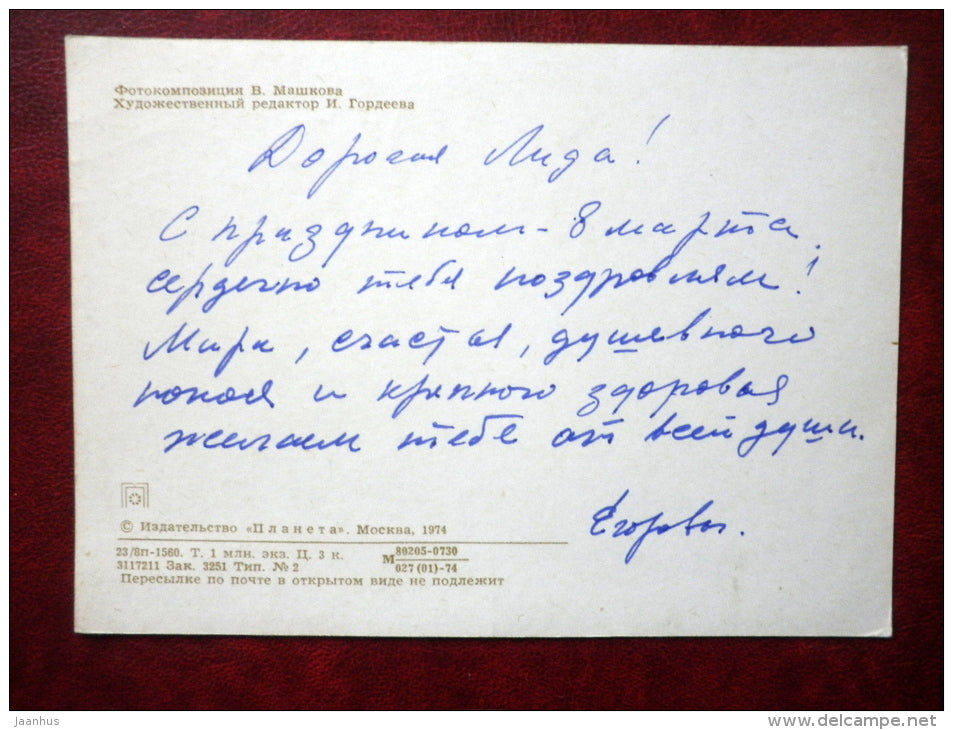 Фотокомпозиция В. Машкова
Художественный редактор И. Гордеева
Дорогая Лида!
С праздником - 8 марта,
сердечно тебя поздравляем!
Мира, счастья, душевного
покоя и крепкого здоровья
желаем тебе от всей души.
Егоровы.
© Издательство «Планета». Москва, 1974
23/8п-1560. Т. 1 млн. экз. Ц. 3 к.
3117211 Зак. 3251 Тип. № 2
М 80205-0730
027(01)-74
Пересылке по почте в открытом виде не подлежит
Jaanhus
www.delcampe.net